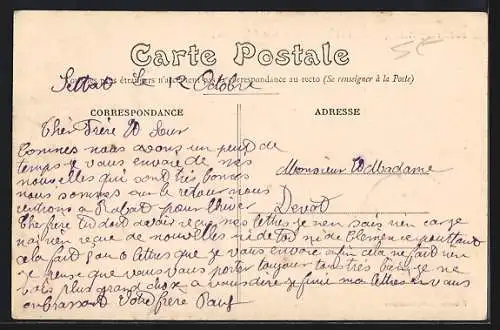 Carte Postale
Tous les pays étrangers n'acceptent pas la correspondance au recto (Se renseigner à la Poste)
Settat le 12 Octobre
CORRESPONDANCE
ADRESSE
Cher Frère et Sœur
Comme nous avons un petit de
temps je vous envoie de mes
nouvelles qui sont très bonnes
nous sommes sur le retour nous
rentrons à Rabat pour l'hiver
Monsieur et Madame
Devot
Cher frère tu dois avoir reçue mes lettres je n'en sais rien car je
n'ai rien reçue de nouvelles ni de toi ni de Clemence pourtant
cela fait 5 ou 6 lettres que je vous envoie enfin cela ne fait rien
je pense que vous vous porter toujour tous très bien je ne
vois plus grand chose a vous dire je finie ma lettre en vous
embrassant Votre frère Paul